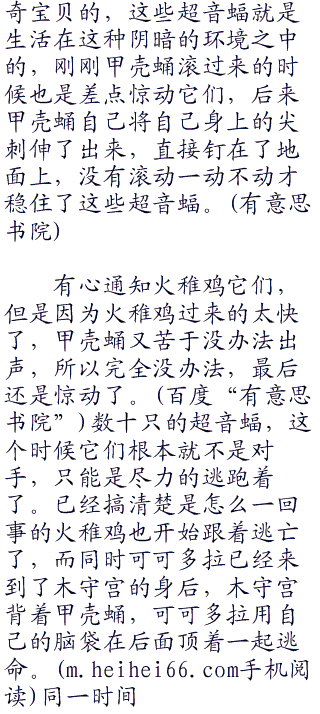 奇宝贝的，这些超音蝠就是
生活在这种阴暗的环境之中
的，刚刚甲壳蛹滚过来的时
候也是差点惊动它们，后来
甲壳蛹自己将自己身上的尖
刺伸了出来，直接钉在了地
面上，没有滚动一动不动才
稳住了这些超音蝠。(有意思
书院)
有心通知火稚鸡它们，
但是因为火稚鸡过来的太快
了，甲壳蛹又苦于没办法出
声，所以完全没办法，最后
还是惊动了。(百度“有意思
书院”)数十只的超音蝠，这
个时候它们根本就不是对
手，只能是尽力的逃跑着
了。已经搞清楚是怎么一回
事的火稚鸡也开始跟着逃亡
了，而同时可可多拉已经来
到了木守宫的身后，木守宫
背着甲壳蛹，可可多拉用自
己的脑袋在后面顶着一起逃
命。(m.heihei66.com手机阅
读)同一时间